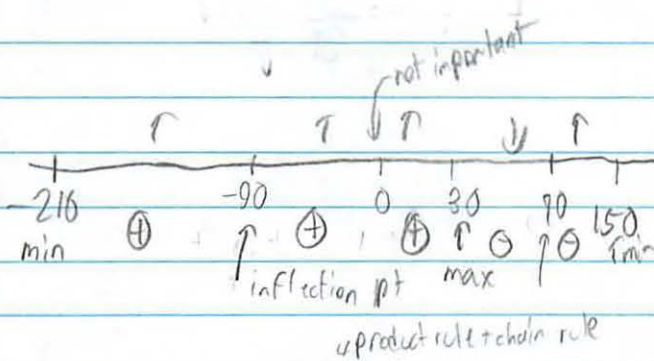 not inportant
↑ ↑ ↑ ↓ ↑
-210 -90 0 30 90 150
min ⊕ ↑ ⊕ ⊕ ↑ ⊖ ↑ ⊖ min
inflection pt max
product rule + chain rule